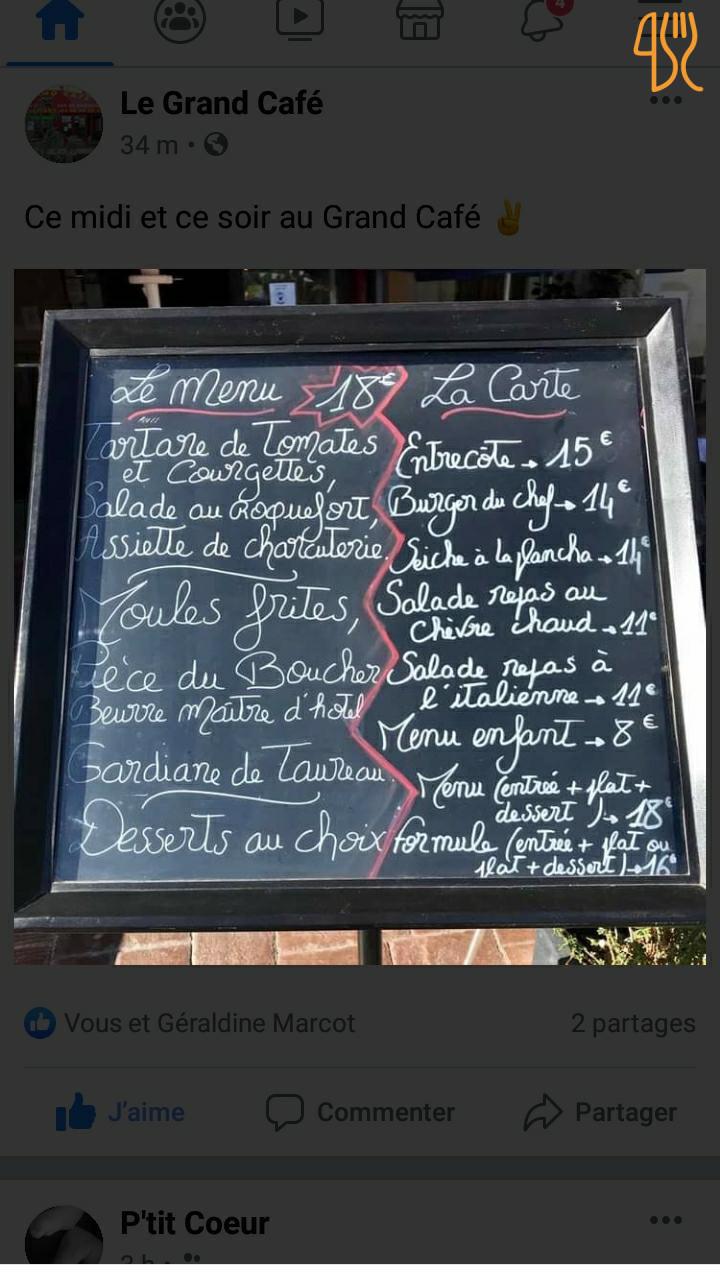 4
Le Grand Café
34 m
Ce midi et ce soir au Grand Café ✌
Le Menu 18€
Tartare de Tomates
et Courgettes,
Salade au Roquefort,
Assiette de charcuterie.
Moules frites,
Pièce du Boucher
Beurre Maître d'hotel
Gardiane de Taureau.
Desserts au choix
La Carte
Entrecôte → 15€
Burger du chef → 14€
Seiche à la plancha → 14€
Salade repas au
chèvre chaud → 11€
Salade repas à
l'italienne → 11€
Menu enfant → 8€
Menu (entrée + plat +
dessert) → 18€
formule (entrée + plat ou
plat + dessert) → 16€
Vous et Géraldine Marcot 2 partages
J'aime Commenter Partager
P'tit Coeur